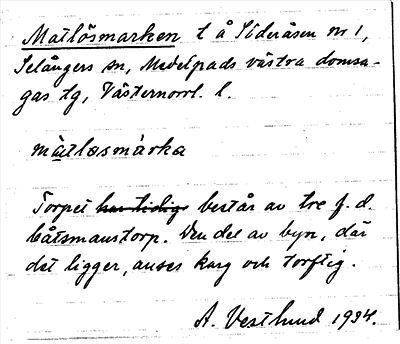 Matlösmarken t å Söderåsen nr 1,
Selångers sn, Medelpads västra domsa-
gas tg, Västernorrl. l.
màtlo̤smàrka
Torpet har tidig består av tre f. d.
båtsmanstorp. Den del av byn, där
det ligger, anses karg och torftig.
A. Vestlund 1934.